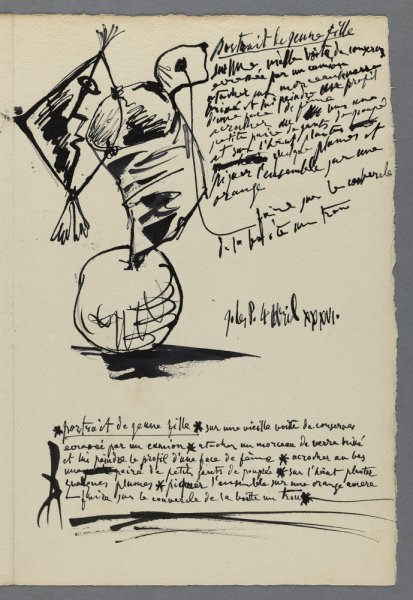 portrait de jeune fille
sur une vieille boite de conserves
ecrasée par un camion
atacher un morceau verre
brisé et lui peindre profil
d'une face de feme
acrocher au bas une
petite paire de gants de poupée
et sur l'héaut plantes
quelques plumes et
piquer l'ensemble sur une
orange
faire sur le couvercle
de la boite un trou
4 Avril XXXVI.
*portrait de jeune fille * sur une vieille boite de conserves
ecrasée par un camion * atacher un morceau de verre brisé
et lui peindre le profil d'une face de feme * acrocher au bas
une paire de petits gants de poupée * sur l'héaut plantes
quelques plumes * piquer l'ensemble sur une orange amere
faire sur le couvercle de la boite un trou *